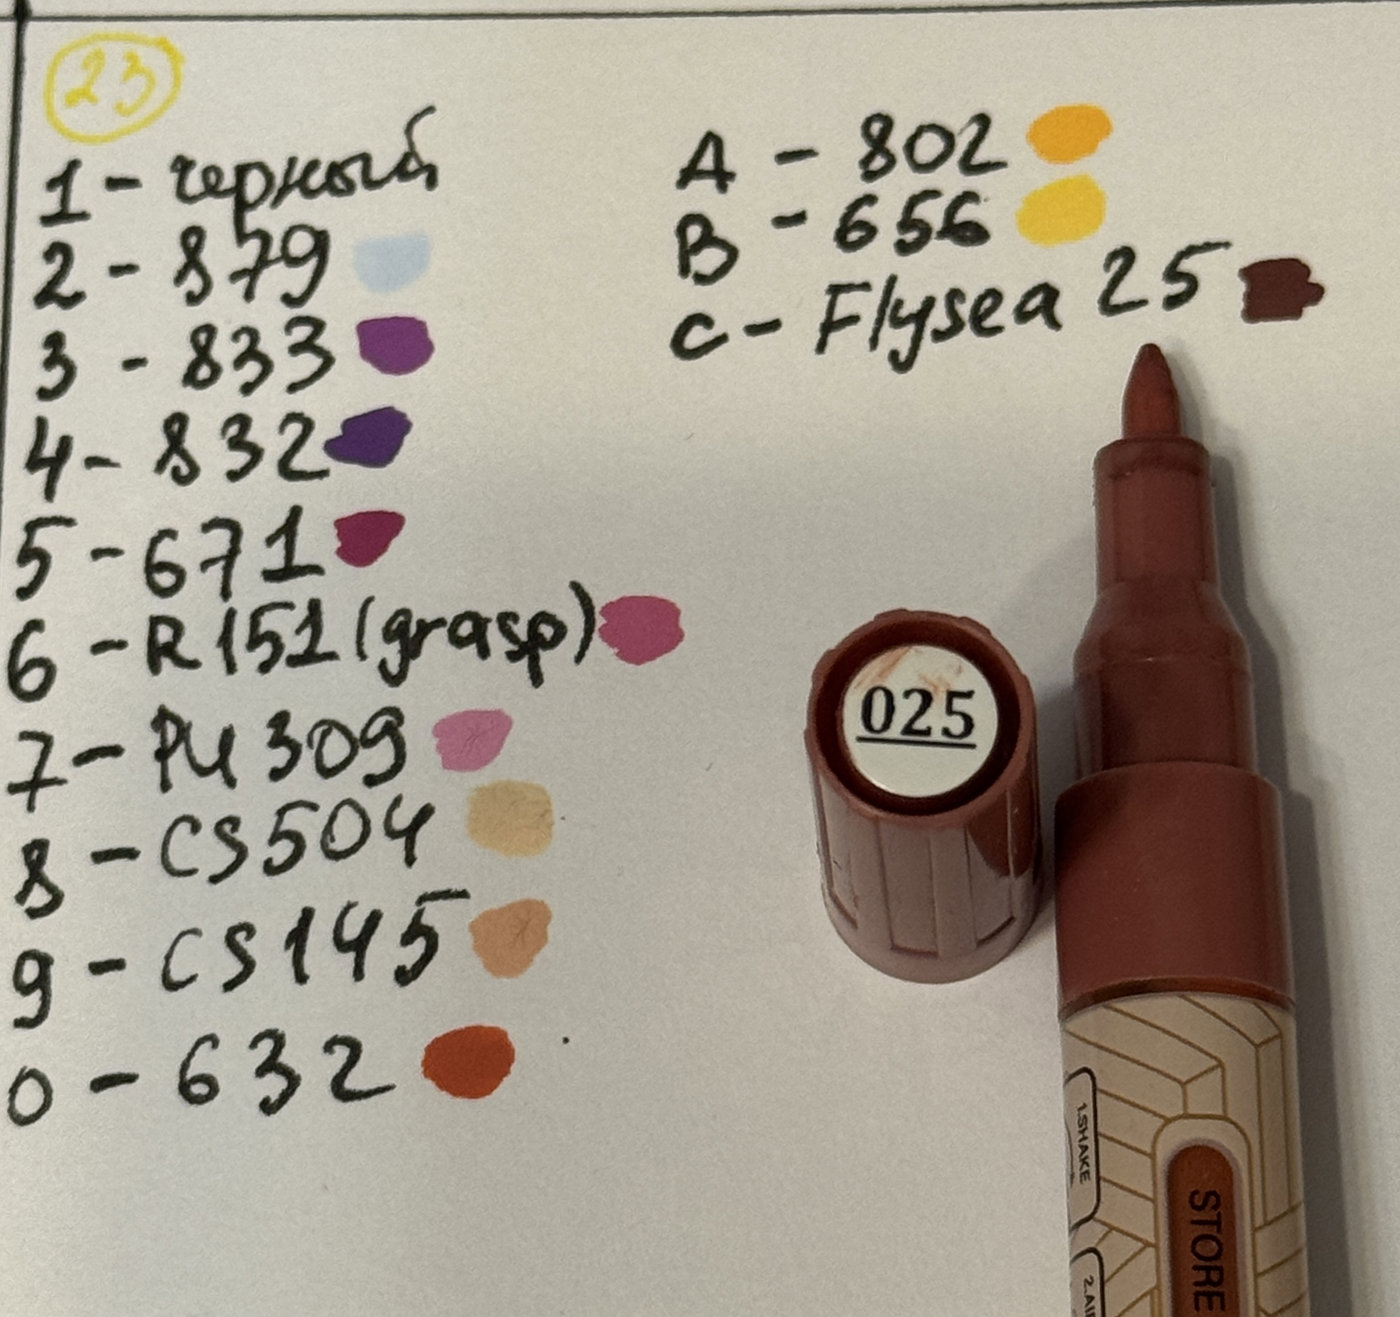 23
1 - черный
2 - 879
3 - 833
4 - 832
5 - 671
6 - R151 (grasp)
7 - РЧ 309
8 - CS504
9 - CS145
0 - 632
A - 802
B - 656
C - Flysea 25
025
1.SHAKE
STORE